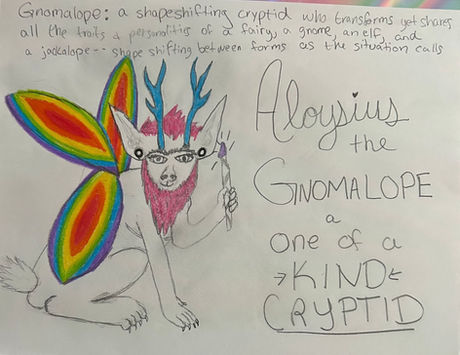 Gnomalope: a shapeshifting cryptid who transforms yet shares
all the traits & personalities of a fairy, a gnome, an elf, and
a jackalope-- shape shifting between forms as the situation calls
Aloysius
the
GNOMALOPE
a
one of a
→KIND←
CRYPTID